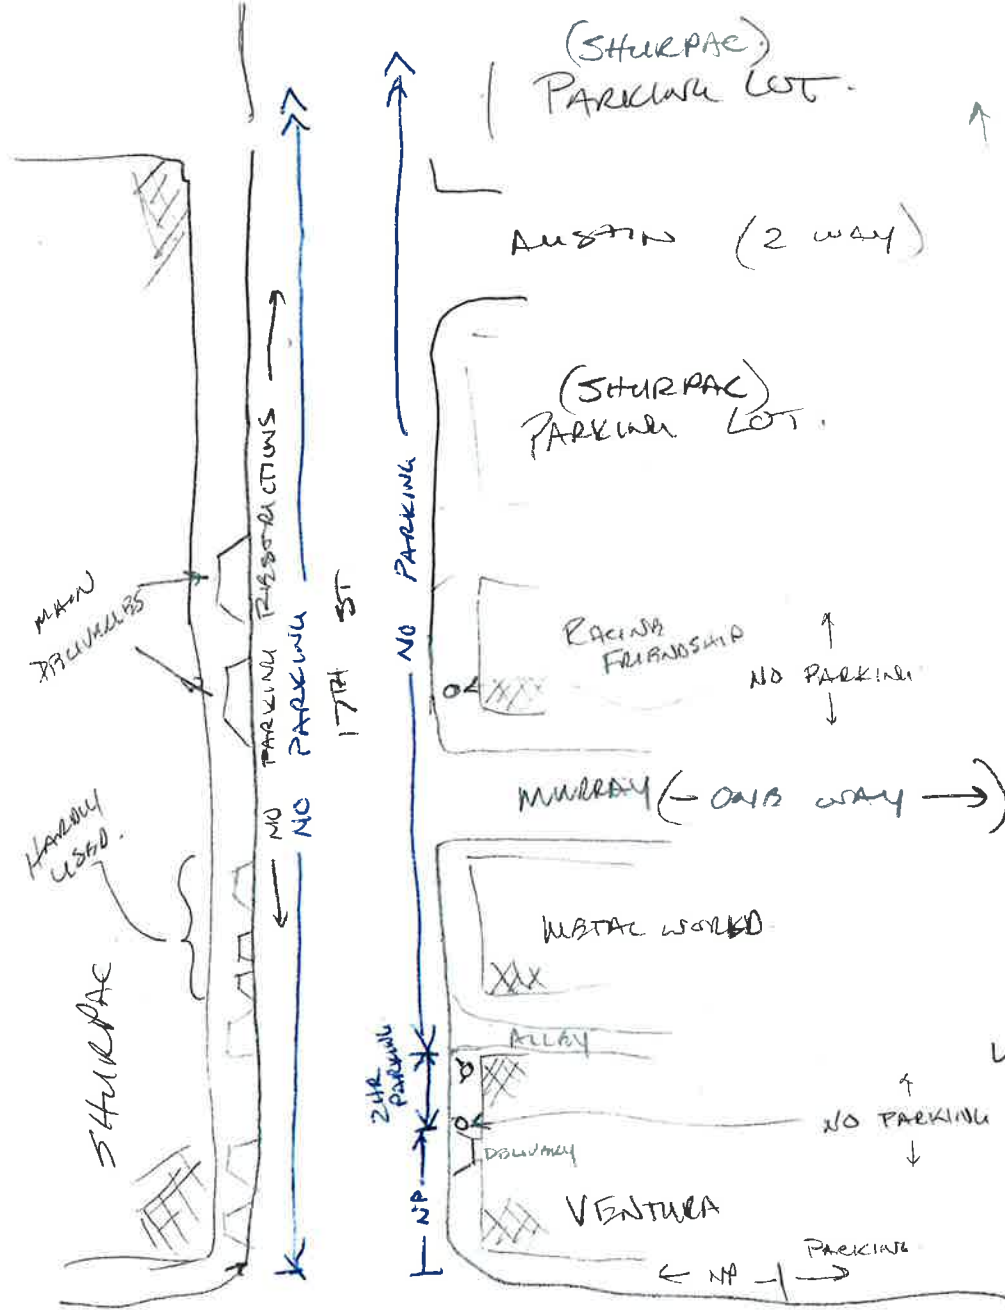 (SHURPAC)
PARKING LOT.
AUSTIN (2 WAY)
(SHURPAC)
PARKING LOT.
NO PARKING RESTRICTIONS
NO PARKING
17TH ST
NO PARKING
MAIN
DELIVERIES
RACINE
FRIENDSHIP
NO PARKING
MURRAY (- ONE WAY →)
HARDLY
USED.
METAL WORLD
SHURPAC
ALLEY
2HR
PARKING
NO PARKING
DELIVERY
NP
VENTURA
PARKING
← NP →